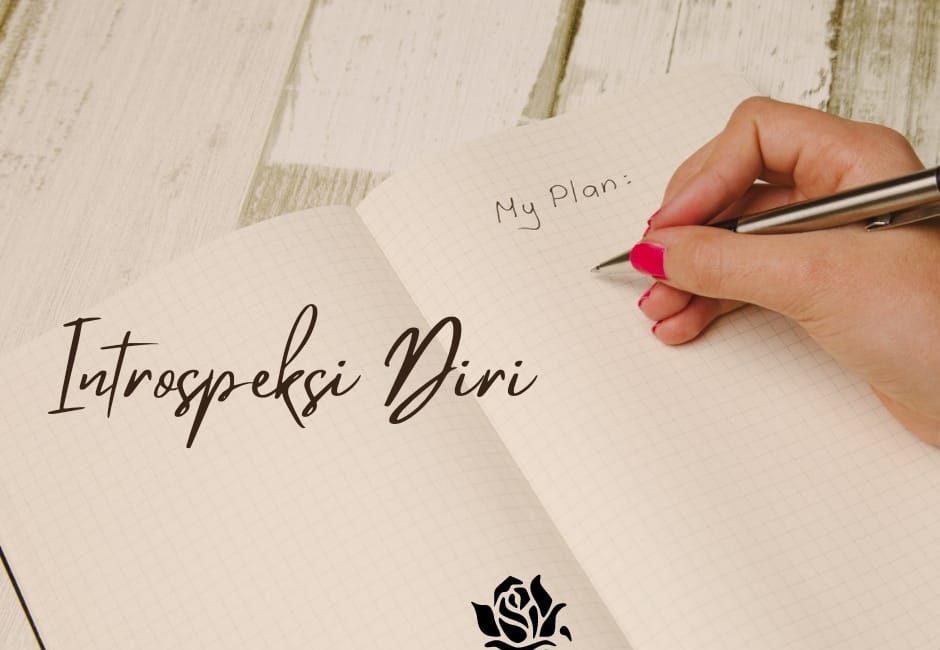 My Plan:
Introspeksi Diri